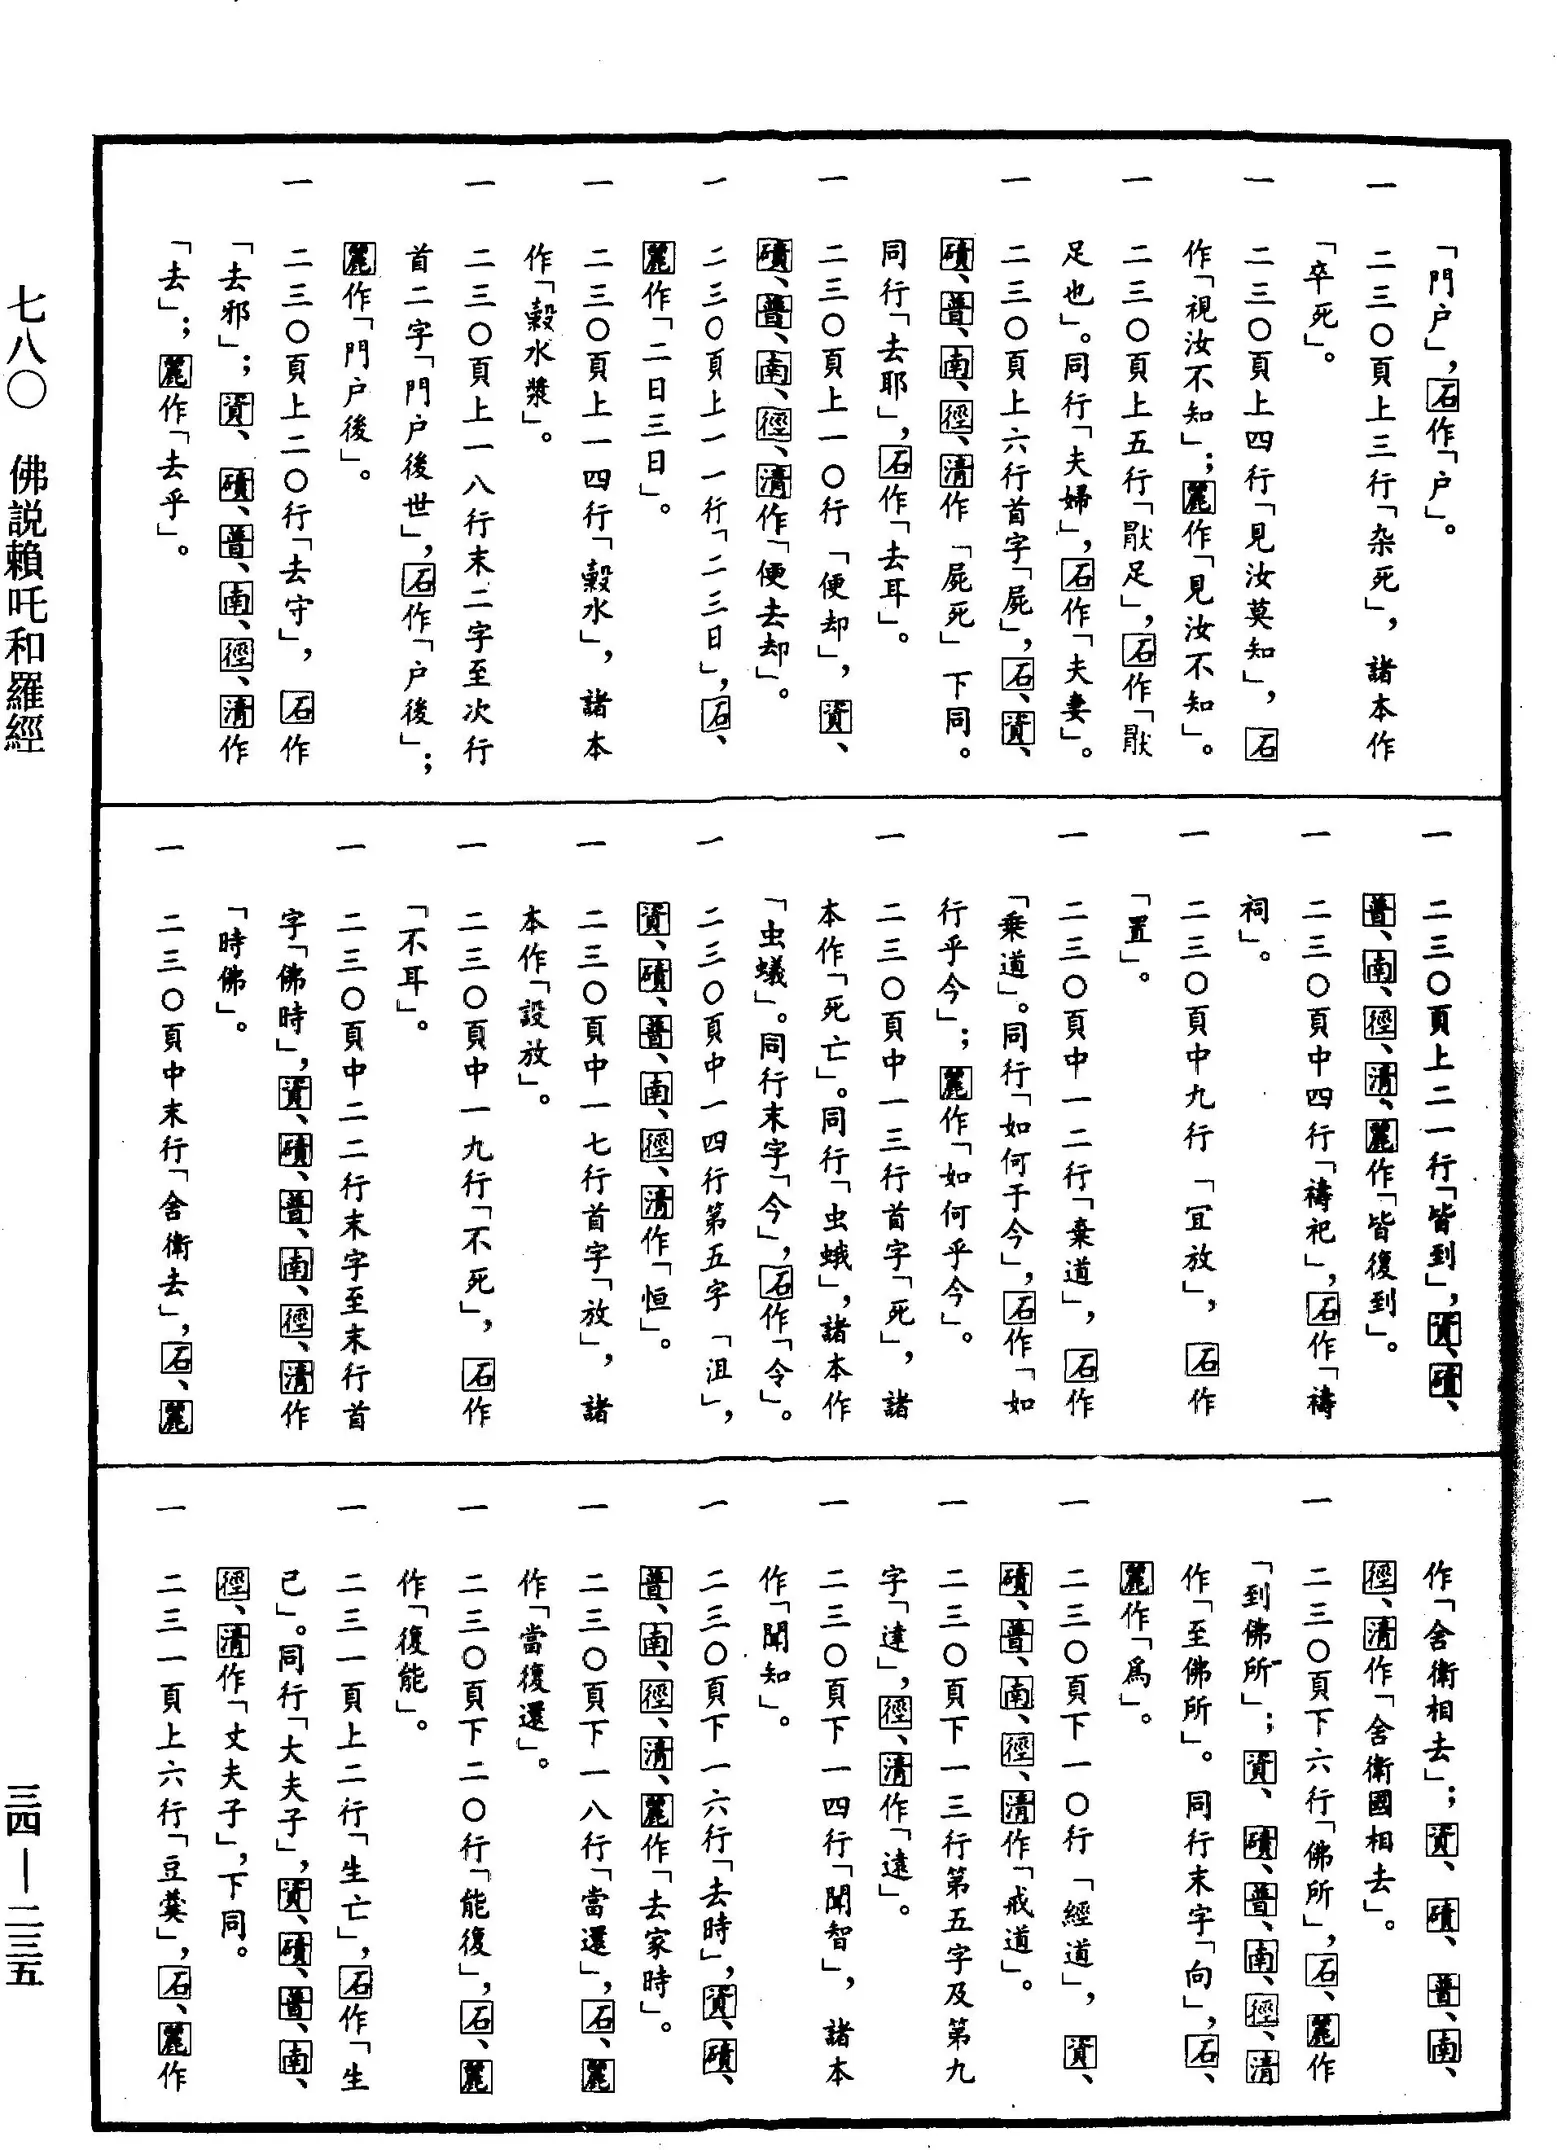 「門户」，石作「户」。
一　二三〇頁上三行「杂死」，諸本作
「卒死」。
一　二三〇頁上四行「見汝莫知」，石
作「視汝不知」；麗作「見汝不知」。
一　二三〇頁上五行「猒足」，石作「猒
足也」。同行「夫婦」，石作「夫妻」。
一　二三〇頁上六行首字「屍」，石、資、
磧、普、南、徑、清作「屍死」下同。
同行「去耶」，石作「去耳」。
一　二三〇頁上一〇行「便却」，資、
磧、普、南、徑、清作「便去却」。
一　二三〇頁上一一行「二三日」，石、
麗作「二日三日」。
一　二三〇頁上一四行「穀水」，諸本
作「穀水漿」。
一　二三〇頁上一八行末二字至次行
首二字「門户後世」，石作「户後」；
麗作「門户後」。
一　二三〇頁上二〇行「去守」，石作
「去邪」；資、磧、普、南、徑、清作
「去」；麗作「去乎」。
一　二三〇頁上二一行「皆到」，資、磧、
普、南、徑、清、麗作「皆復到」。
一　二三〇頁中四行「禱祀」，石作「禱
祠」。
一　二三〇頁中九行「冝放」，石作
「置」。
一　二三〇頁中一二行「棄道」，石作
「乗道」。同行「如何于今」，石作「如
行乎今」；麗作「如何乎今」。
一　二三〇頁中一三行首字「死」，諸
本作「死亡」。同行「虫蛾」，諸本作
「虫蟻」。同行末字「今」，石作「令」。
一　二三〇頁中一四行第五字「沮」，
資、磧、普、南、徑、清作「恒」。
一　二三〇頁中一七行首字「放」，諸
本作「設放」。
一　二三〇頁中一九行「不死」，石作
「不耳」。
一　二三〇頁中二二行末字至末行首
字「佛時」，資、磧、普、南、徑、清作
「時佛」。
一　二三〇頁中末行「舍衛去」，石、麗
作「舍衛相去」；資、磧、普、南、
徑、清作「舍衛國相去」。
一　二三〇頁下六行「佛所」，石、麗作
「到佛所」；資、磧、普、南、徑、清
作「至佛所」。同行末字「向」，石、
麗作「爲」。
一　二三〇頁下一〇行「經道」，資、
磧、普、南、徑、清作「戒道」。
一　二三〇頁下一三行第五字及第九
字「達」，徑、清作「遠」。
一　二三〇頁下一四行「聞智」，諸本
作「聞知」。
一　二三〇頁下一六行「去時」，資、磧、
普、南、徑、清、麗作「去家時」。
一　二三〇頁下一八行「當還」，石、麗
作「當復還」。
一　二三〇頁下二〇行「能復」，石、麗
作「復能」。
一　二三一頁上二行「生亡」，石作「生
已」。同行「大夫子」，資、磧、普、南、
徑、清作「丈夫子」，下同。
一　二三一頁上六行「豆羹」，石、麗作
七八〇　佛説賴吒和羅經
三四—二三五